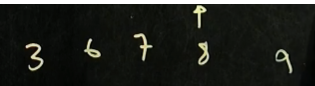 3 6 7 8 9